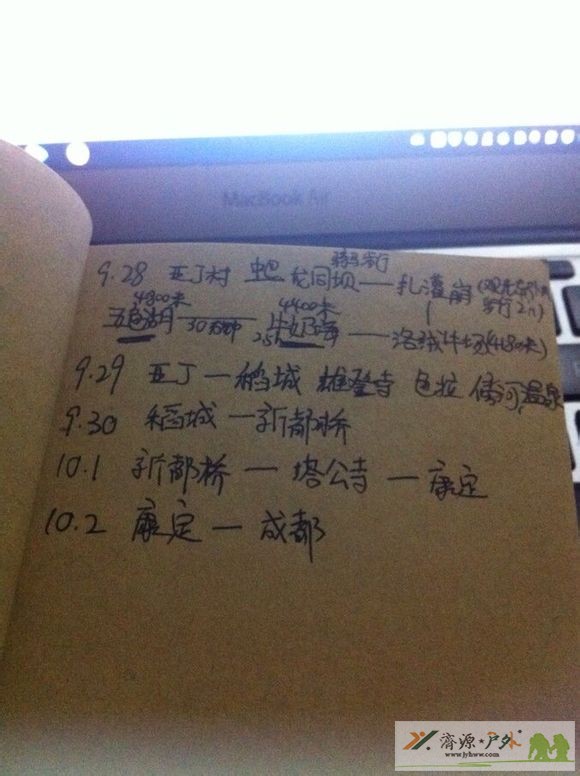 MacBook Air
骑马步行
9.28 亚丁村 龙同坝—扎灌崩(观光车
步行2h)
4800米 4400米
五色湖 30分钟 牛奶海 — 洛绒牛场(4180米)
9.29 亚丁—稻城 雄登寺 色拉 傍河 温泉
9.30 稻城—新都桥
10.1 新都桥—塔公寺—康定
10.2 康定—成都
济源★户外
www.jyhww.com